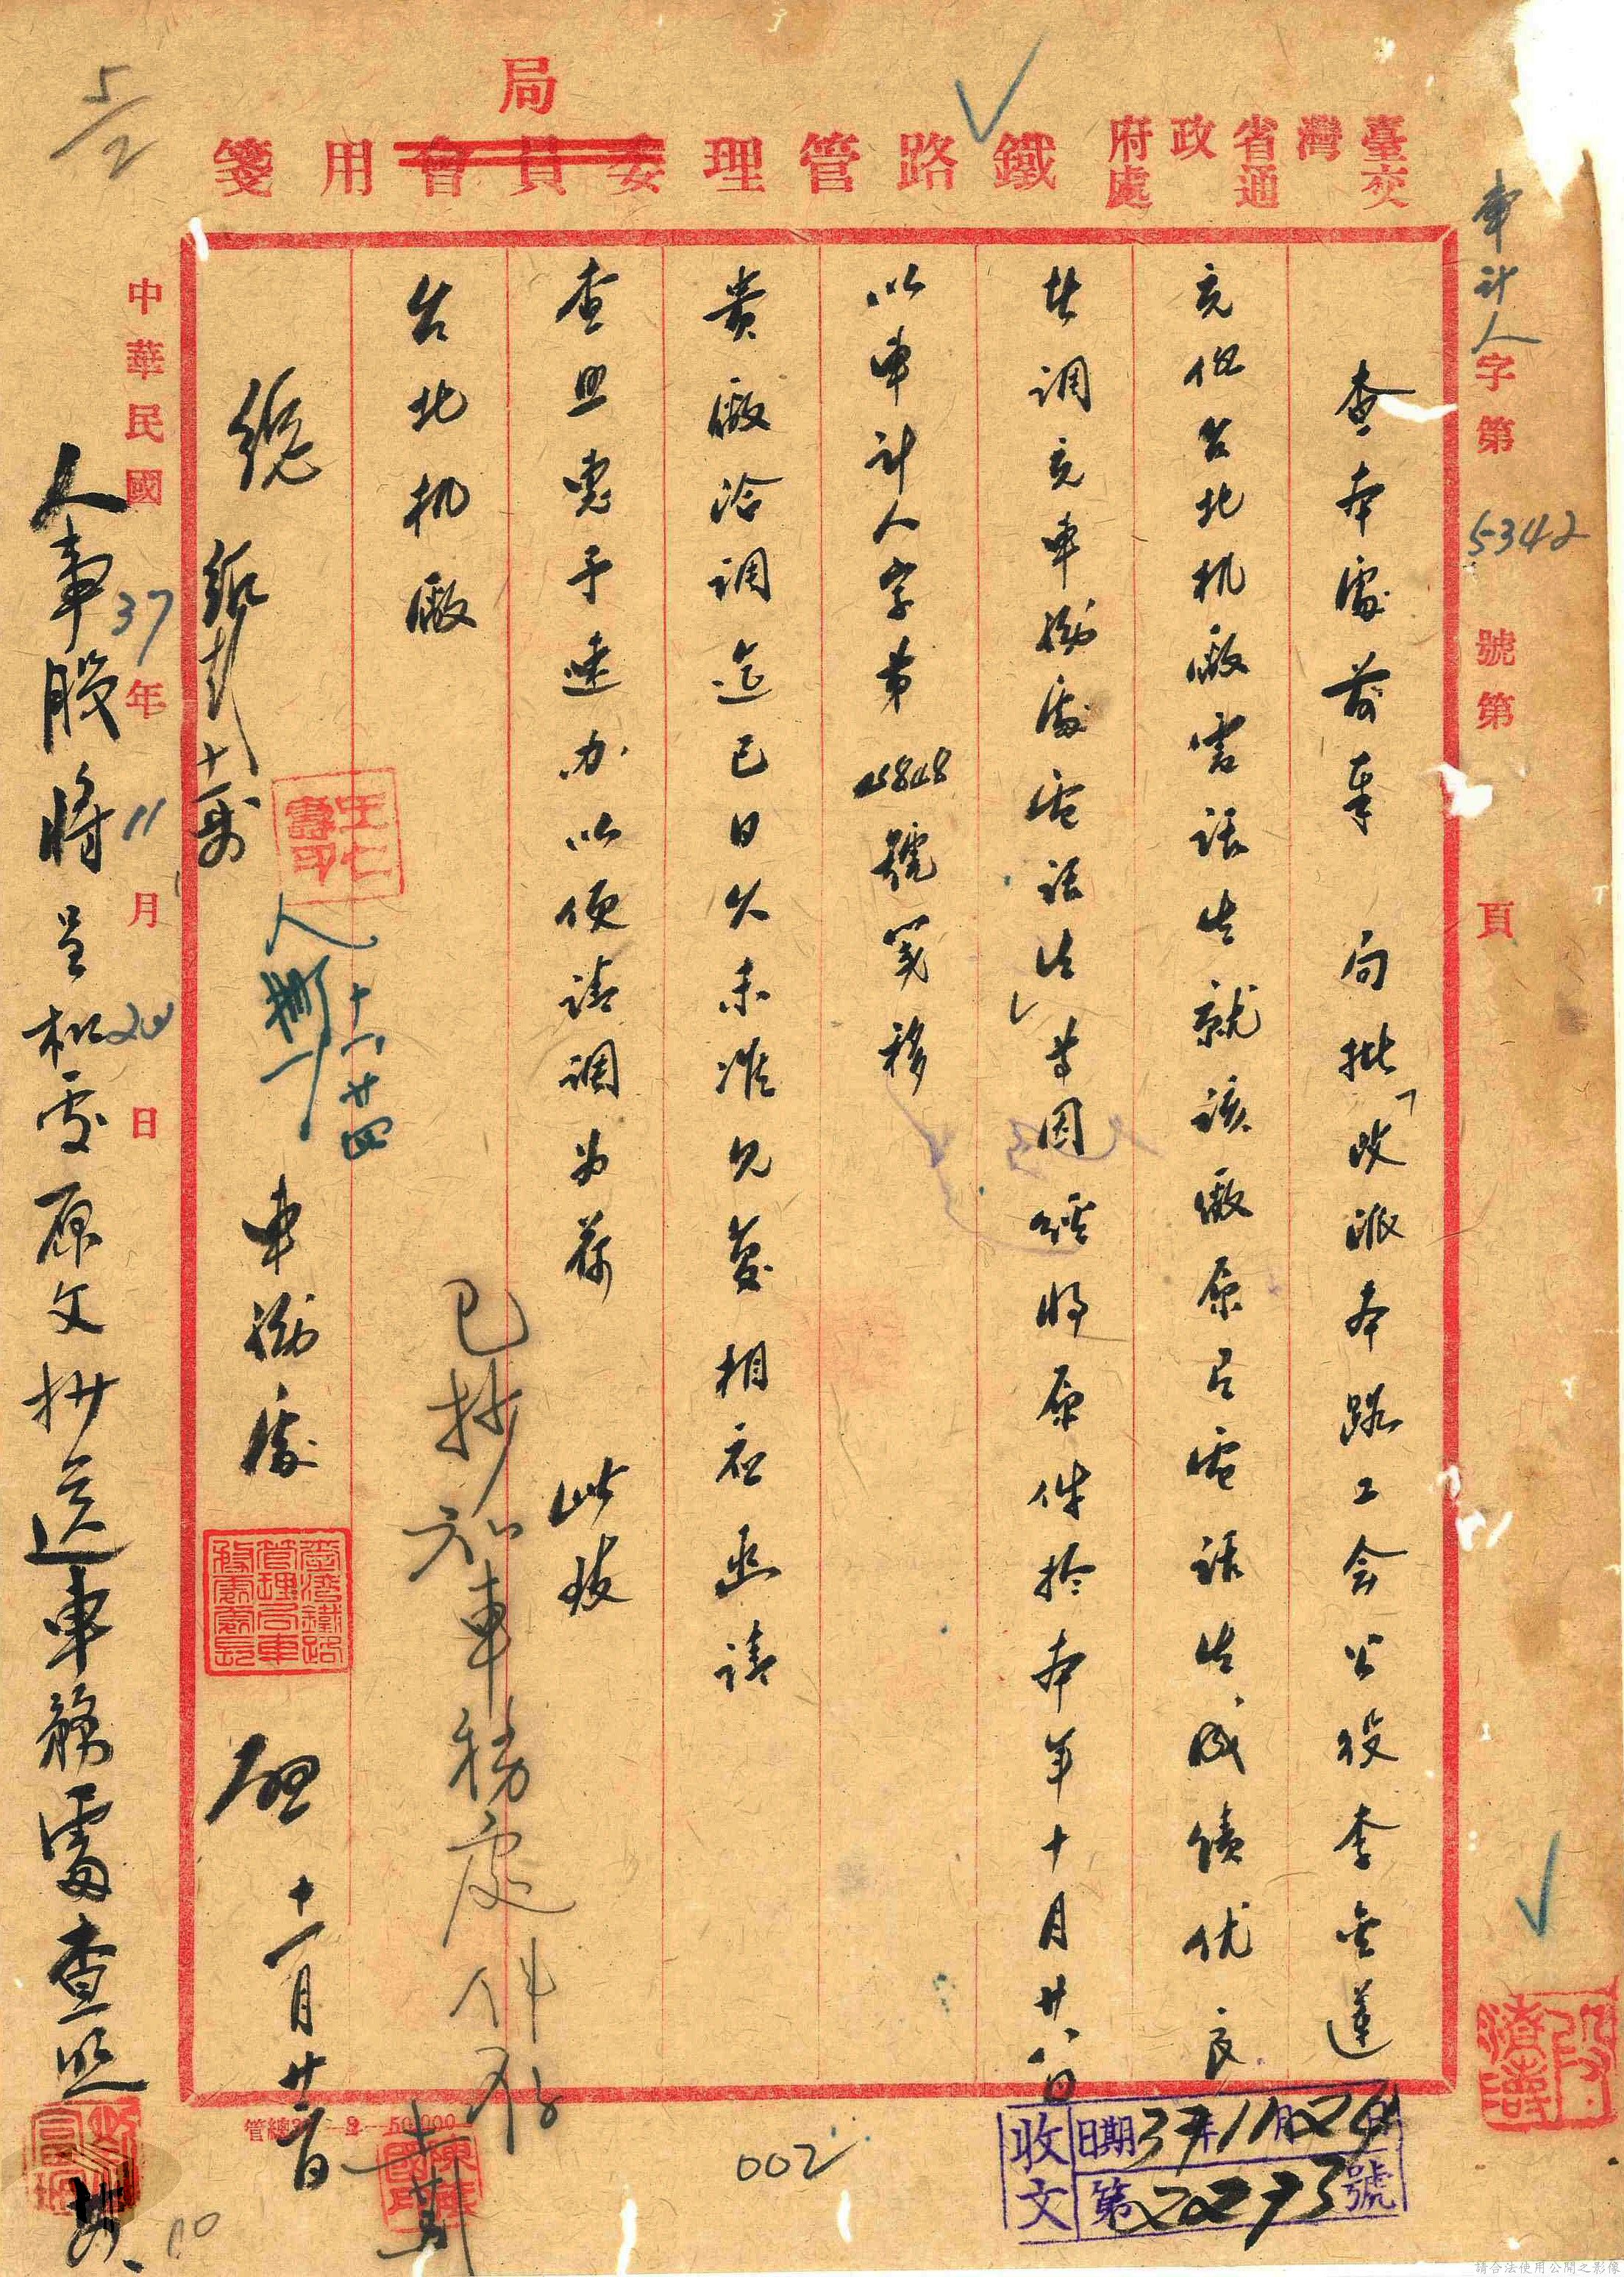 臺灣省政府
交通處
鐵路管理委員會用箋
局
車計人字第5342號第 頁
查本處前奉 局批「改派本路工会公役李金蓮
充任台北机廠電話生就該廠原占電話生成績优良
者調充車務處電話生」等因經將原件於本年十月廿八日
以車計人字第4848號箋移
貴廠洽調迄已日久未准允蔆相應函請
查照惠予速办以便請調為荷 此致
台北机廠
車務處 啟 十一月廿二日
人事股將呈松雲原文抄送車務處查照
已抄知車務處件存
十一、廿四
中華民國37年11月24日
收文
日期37年11月24日
第2293號
002
5/2
請合法使用公開之影像